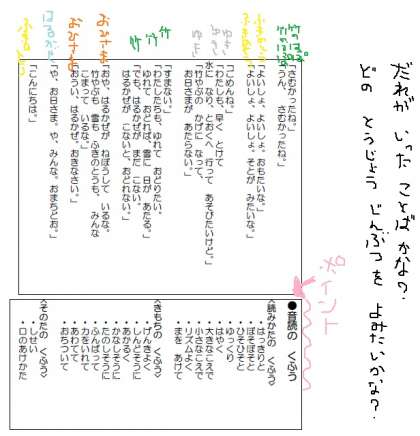 だれが いった ことばかな?
どの とうじょう じんぶつを よみたいかな?
ポイント
竹のはっぱ
竹のはっぱ
ふきのとう
ふきのとう
ゆき
ゆき
ゆき
竹
竹
竹
おひさま
おひさま
はるかぜ
ふきのとう
「さむかったね。」
「うん、さむかったね。」
「よいしょ、よいしょ。おもたいな。」
「よいしょ、よいしょ。そとが みたいな。」
「ごめんね。」
「わたしも、早く とけて
水に なり、とおくへ 行って あそびたいけど。」
「竹やぶの かげに なって、
お日さまが あたらない。」
「すまない。」
「わたしたちも、ゆれて おどりたい。
ゆれて おどれば、雪に 日が あたる。」
「でも、はるかぜが まだ こない。
はるかぜが こないと、おどれない。」
「おや、はるかぜが ねぼうして いるな。
竹やぶも 雪も ふきのとうも、みんな
こまって いるな。」
「おうい、はるかぜ。おきなさい。」
「や、お日さま。や、みんな。おまちどお。」
「こんにちは。」
●音読の くふう
<読みかたの くふう>
・はっきりと
・ぼそぼそと
・ひそひそと
・ゆっくり
・はやく
・大きなこえで
・小さなこえで
・リズムよく
・まを あけて
<きもちの くふう>
・げんきよく
・しんどそうに
・あかるく
・かなしそうに
・たのしそうに
・ふんばって
・力をいれて
・あわてて
・おちついて
<そのたの くふう>
・しせい
・口のあけかた